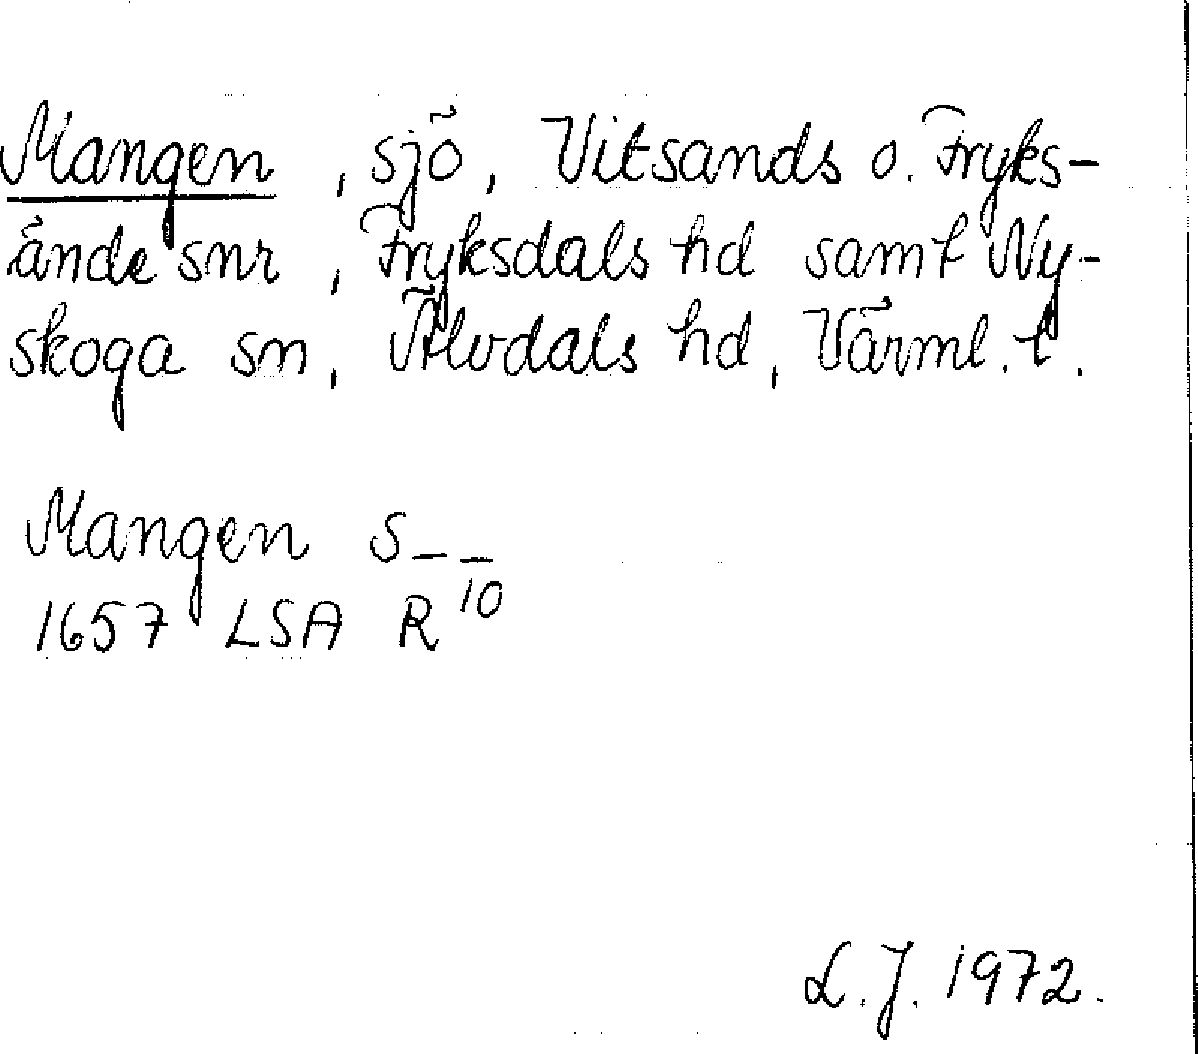 Mangen, sjö, Vitsands o. Fryks-
ände snr, Fryksdals hd samt Ny-
skoga sn, Älvdals hd, Värml. l.
Mangen S _ _
1657 LSA R 10
L.J. 1972.